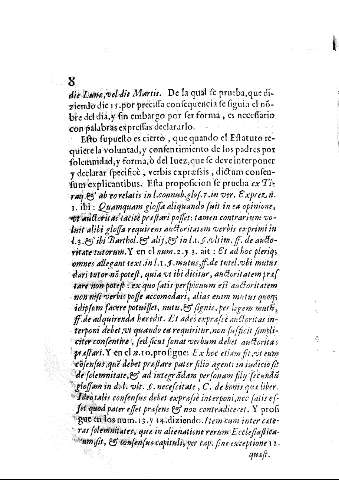 8
die Lunæ, vel die Martis. De la qual se prueba, que di-
ziendo die 15. por precissa consequencia se siguia el nõ-
bre del dia, y sin embargo por ser forma, es necessario
con palabras expressas declararlo.
Esto supuesto es cierto, que quando el Estatuto re-
quiere la voluntad, y consentimiento de los padres por
solemnidad, y forma, ò del Iuez, que se deve interponer
y declarar specificè, verbis expræssis, dictum consen-
sum explicantibus. Esta proposicion se prueba ex Ti-
raq. & ab eo relatis in l. connub. glos. 7. in ver. Expræs. n.
3. ibi: Quamquam glossa aliquando fuit in ea opinione,
ut auctoritas tacitè præstari posset: tamen contrarium vo-
luit alibi glossa requirens auctoritatem verbis exprimi in
l. 3. & ibi Barthol. & alij, & in l. 5. §. ultim. ff. de aucto-
ritate tutorum. Y en el num. 2. y 3. ait: Et ad hoc pleriq;
omnes allegant text. in l. 1. §. mutus, ff. de tutel. ubi mutus
dari tutor nõ potest, quia ut ibi dicitur, auctoritatem præs-
tare non potest: ex quo satis perspicuum est auctoritatem
non nisi verbis posse accomodari, alias enim mutus quoq;
idipsum facere potuisset, nutu, & signis, per legem mutũ,
ff. de adquirenda hæredit. Et adeò expræsè auctoritas in-
terponi debet, ut quando ea requiritur, non suficit simpli-
citer consentire, sed secus sonat verbum debet auctoritas
præstari. Y en el n. 10. prosigue: Ex hoc etiam fit, ut cum
cõsensus, quẽ debet præstare pater filio agenti in iudicio sit
de solemnitate, & ad integrãdam personam filij secundũ
glossam in d. l. ult. §. necessitate, C. de bonis quæ liber.
Ideo talis consensus expressè debet interponi, nec satis es-
set quod pater esset præsens & non contradiceret. Y prosi-
gue en los num. 13. y 14. diziendo. Item cum inter cete-
ras solemnitates, quæ in alienatione rerum Ecclesiastica-
rum, sit, & consensus capituli, per cap. sine exceptione 12.
quæst.